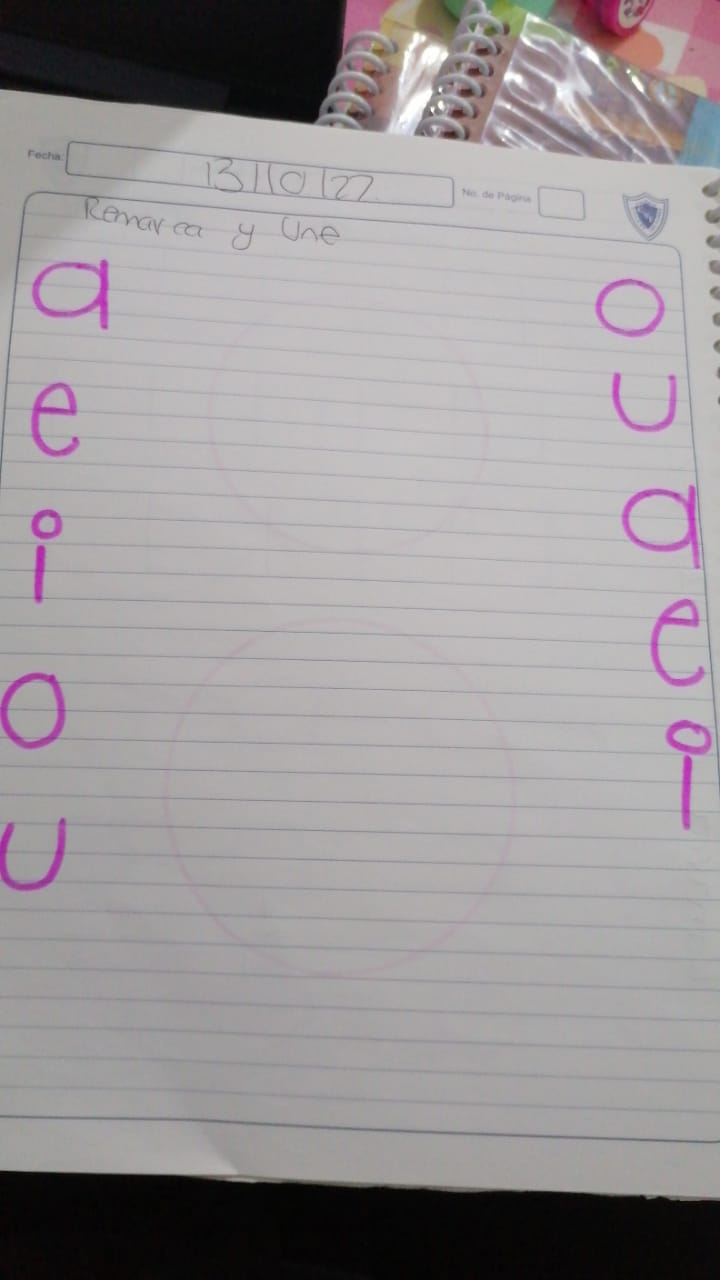 Fecha: 13/10/22 No. de Página
Remarca y Une
a o
e u
i a
o e
u i